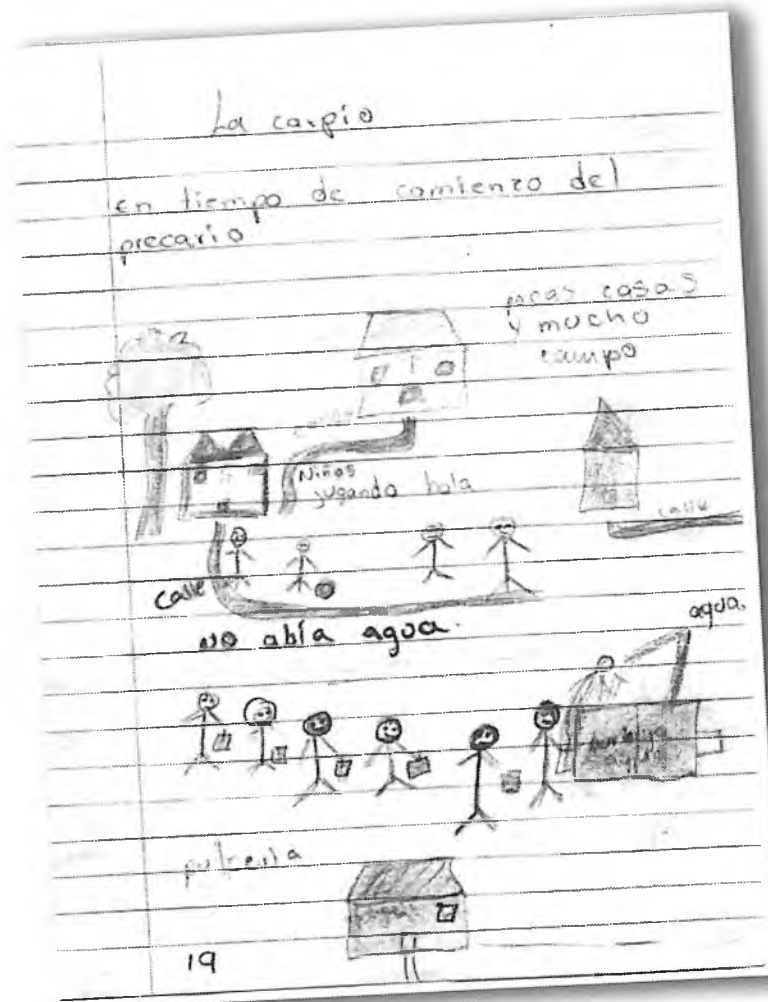 La carpio
en tiempo de comienzo del
precario
pocas casas
y mucho
campo
Niños
jugando bola
calle
calle
no abía agua.
agua.
pulpería
19